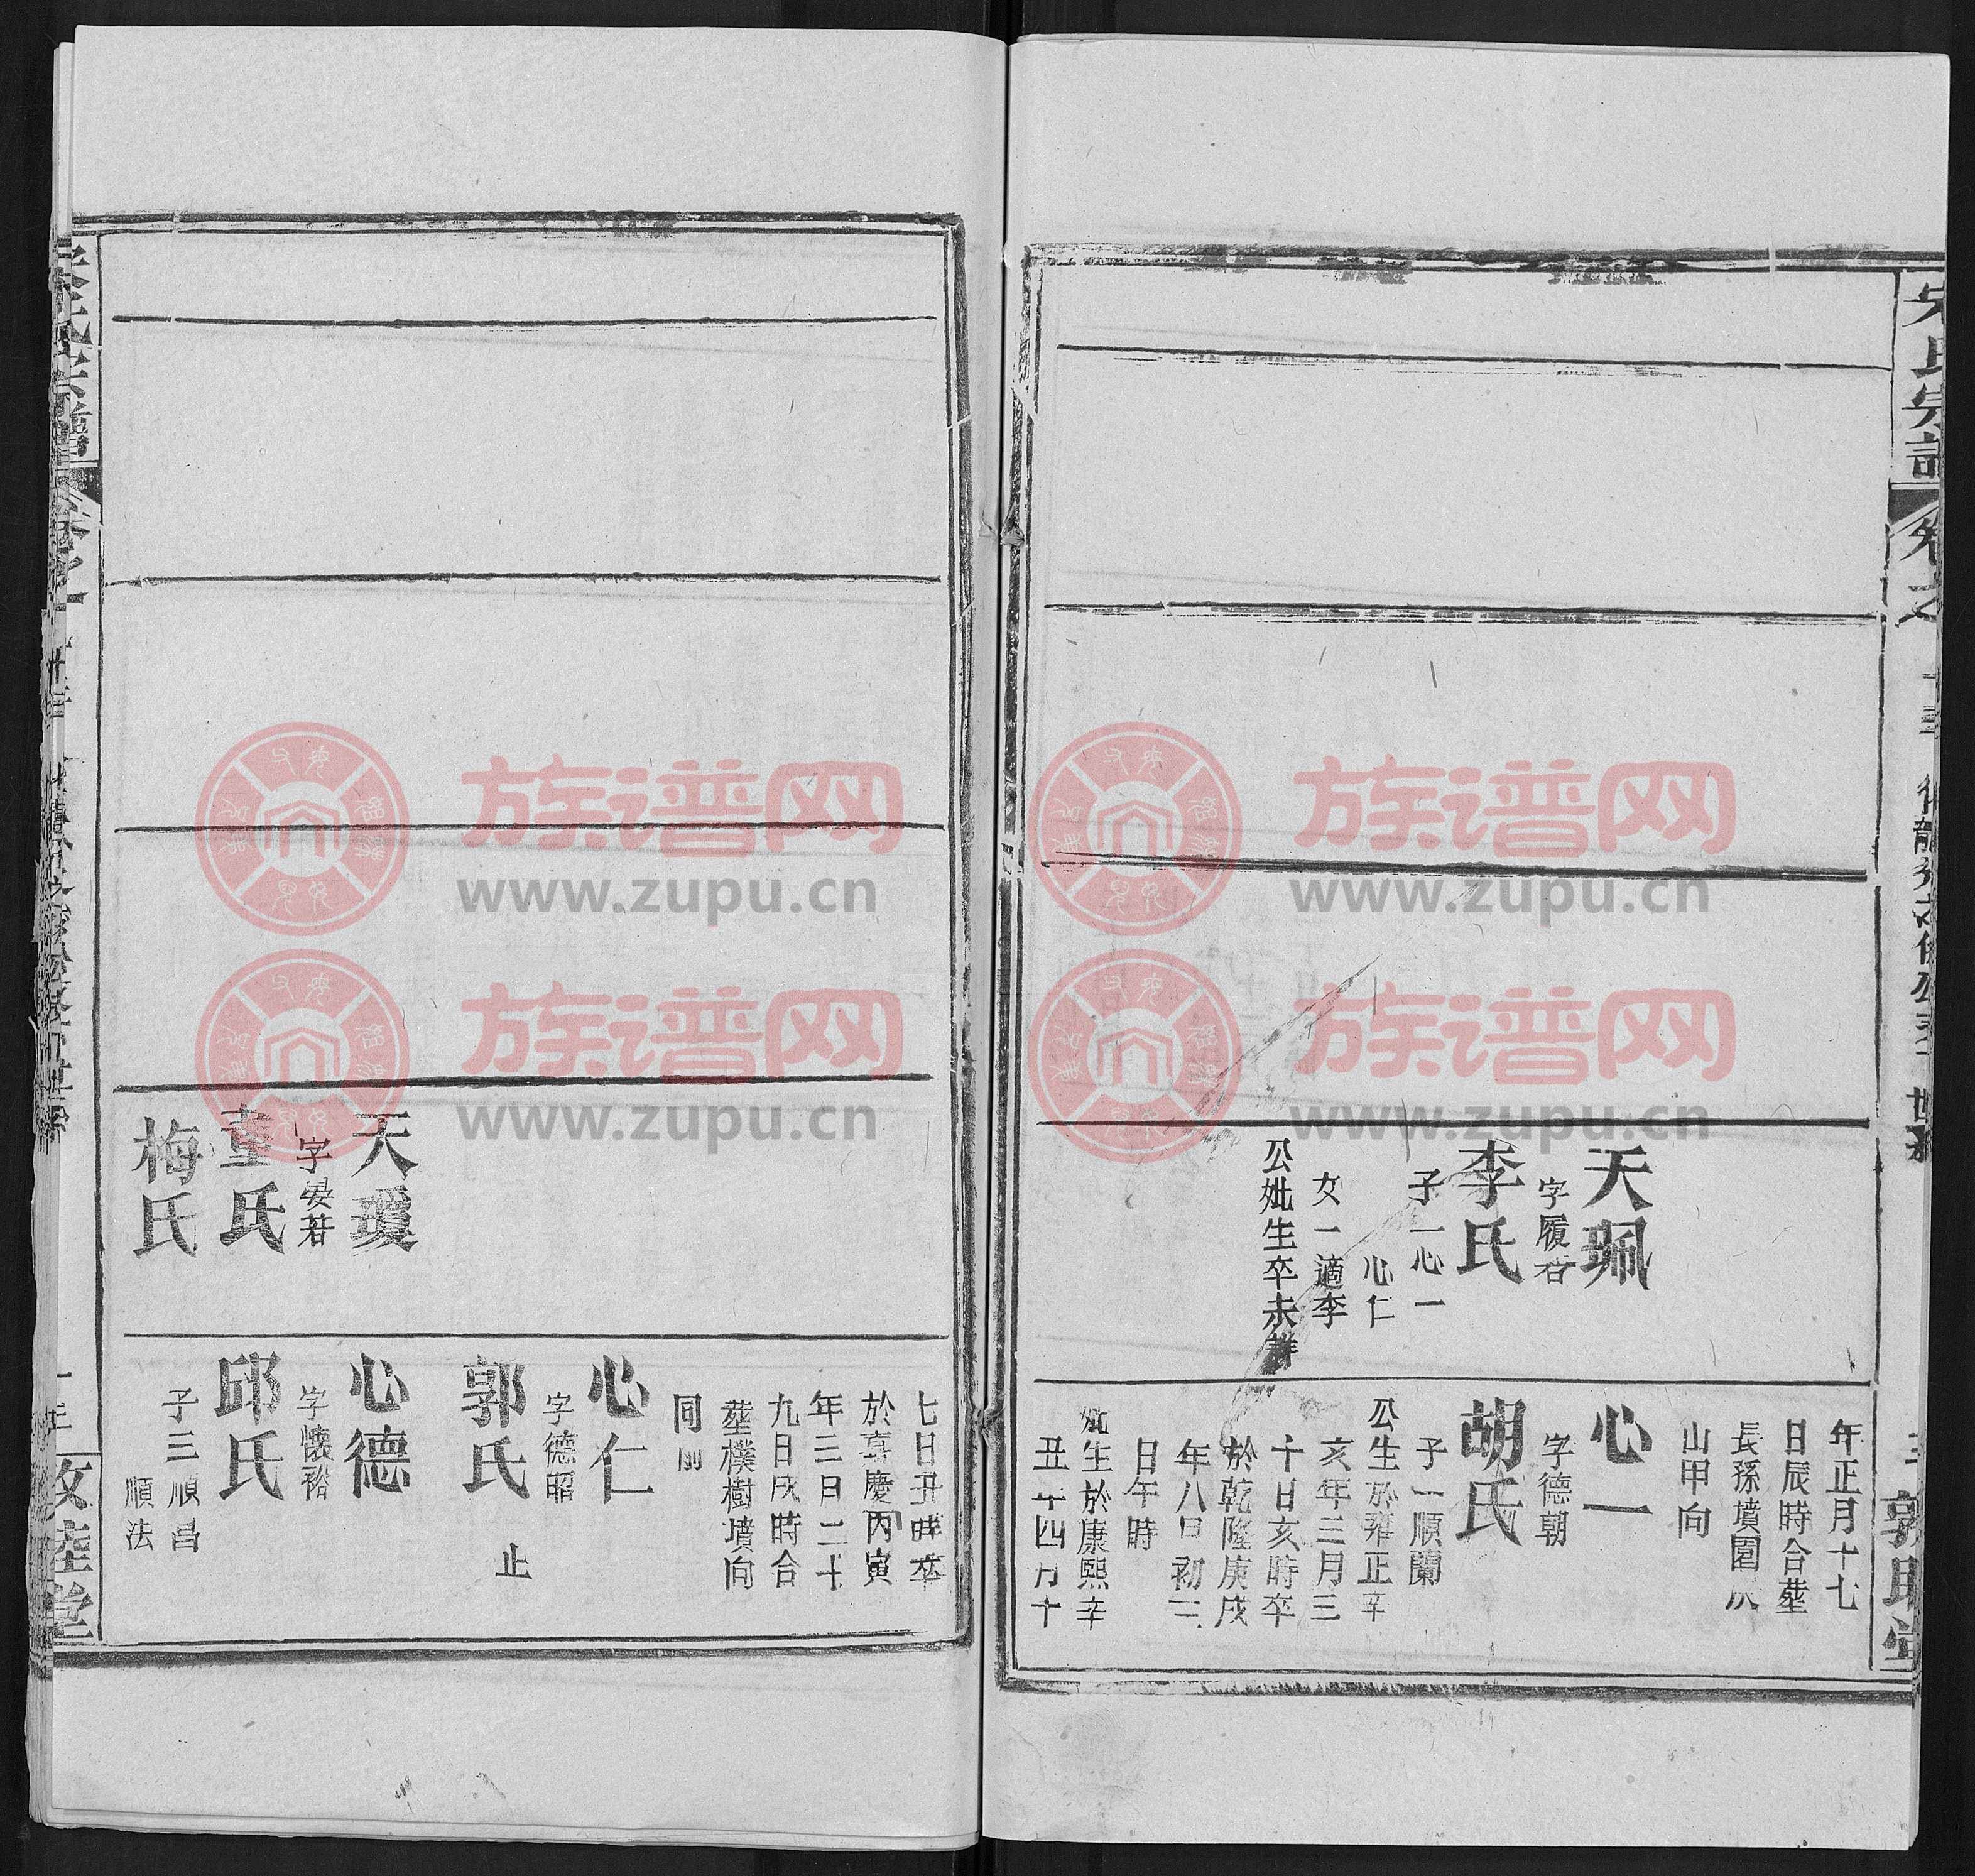 氏宗譜
天珮
字履
李氏
子二心一
心仁
女一適李
公妣生卒未詳
年正月十七
日辰時合塟
長孫墳園
山甲向
心一
字德朝
胡氏
子一順蘭
公生於雍正辛
亥年三月三
十日亥時卒
於乾隆庚戌
年八月初二
日午時
妣生於康熙辛
丑年四月十
七日丑時卒
於嘉慶丙寅
年三月二十
九日戌時合
塟樸樹墳向
同前
心仁
字德昭
郭氏
止
天瓊
字晏若
董氏
梅氏
心德
字懷裕
邱氏
子三順昌
順法
宗譜
敦睦堂
族谱网
www.zupu.cn
族谱网
www.zupu.cn
族谱网
www.zupu.cn
族谱网
www.zupu.cn